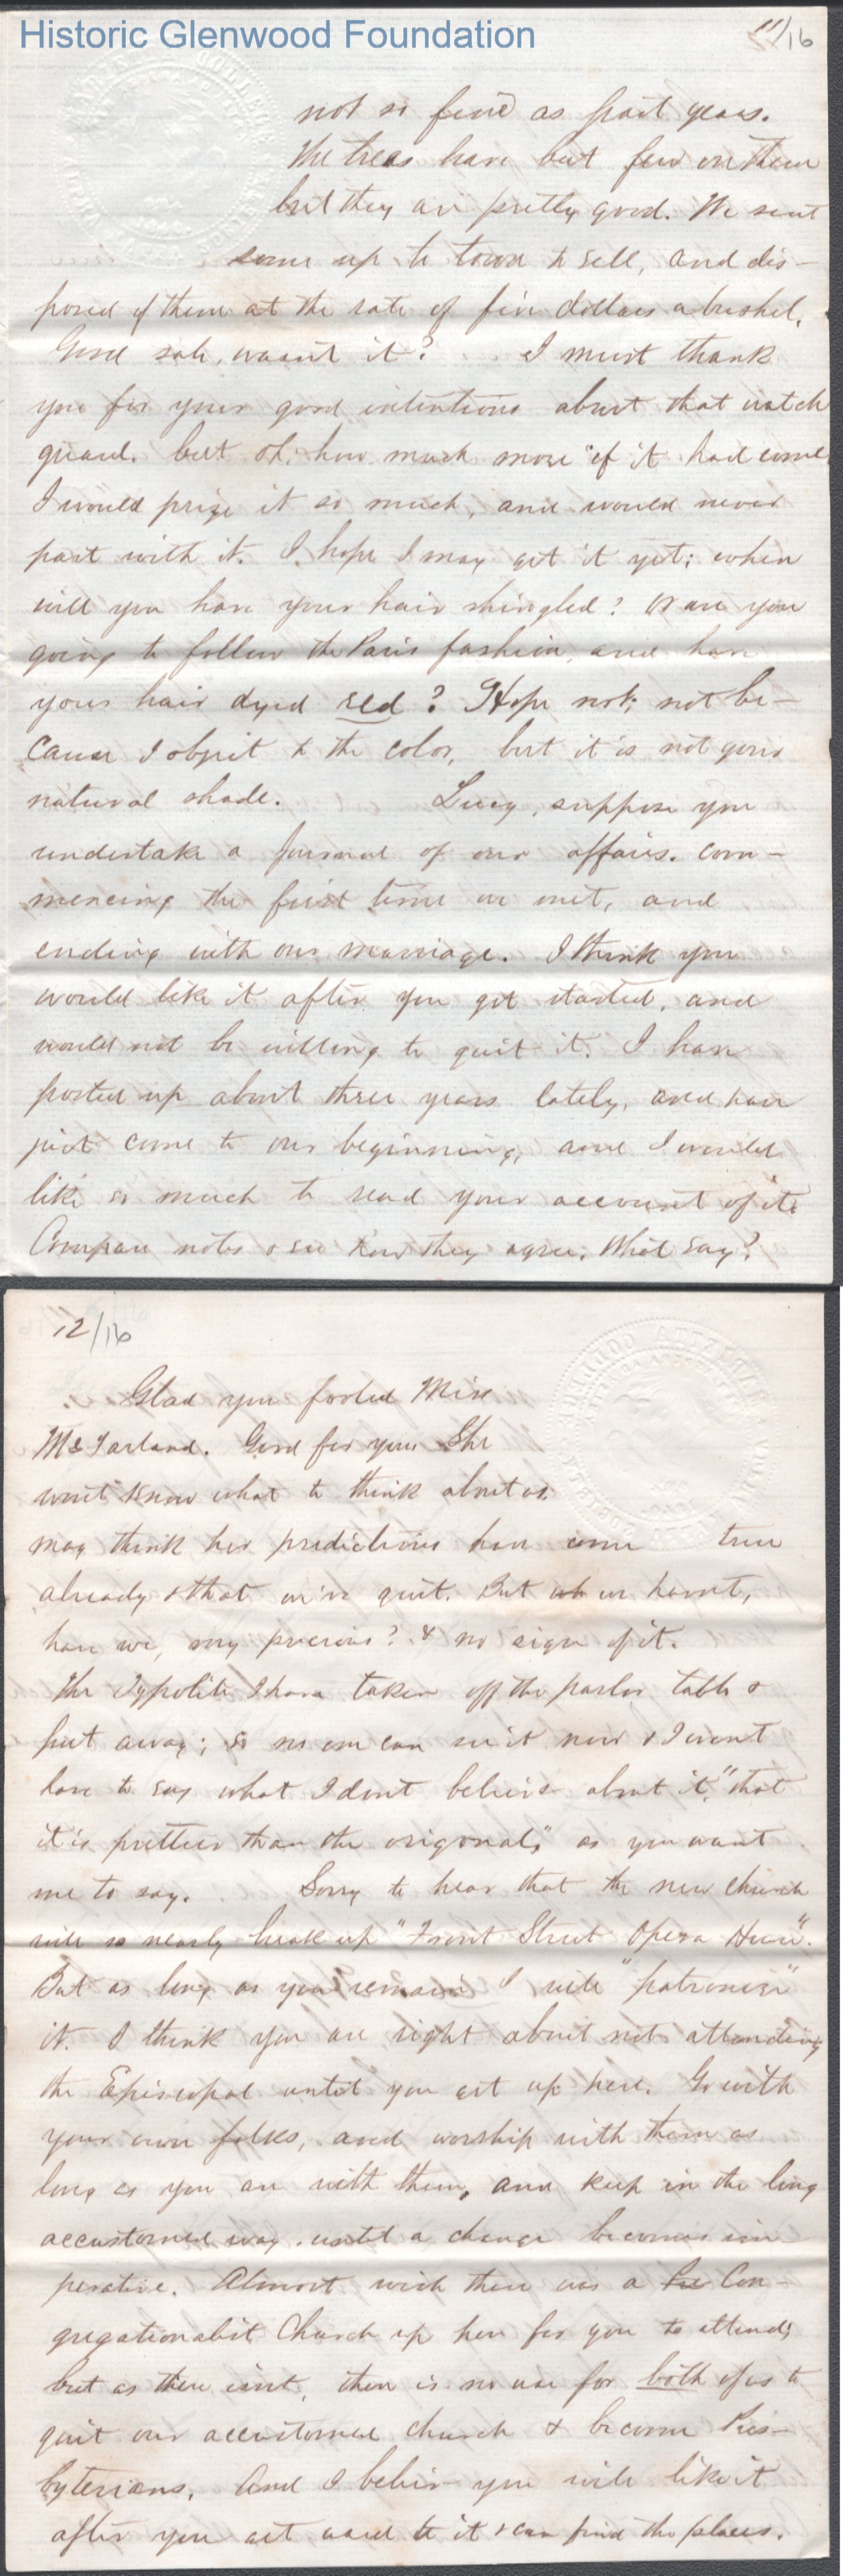 Historic Glenwood Foundation
11/16
not so fine as past years.
The trees have but few on them
but they are pretty good. We sent
some up to town to sell, and dis-
posed of them at the rate of five dollars a bushel.
Good sale, wasn't it? I must thank
you for your good intentions about that watch
guard. but oh, how much more "if it had come.
I would prize it so much, and would never
part with it. I hope I may get it yet; when
will you have your hair shingled? or are you
going to follow the Paris fashion, and have
your hair dyed red? Hope not; not be-
cause I object to the color, but it is not your
natural shade. Lucy, suppose you
undertake a journal of our affairs. com-
mencing the first time we met, and
ending with our marriage. I think you
would like it after you get started, and
would not be willing to quit it. I have
posted up about three years lately, and have
just come to our beginning, and I would
like so much to read your account of it &
Compare notes & see how they agree. What say?
12/16
Glad you fooled Miss
McFarland. Good for you. She
won't know what to think about us,
may think her predictions have come true
already & that we've quit. But we havnt,
have we, my precious? & no sign of it.
The I have taken off the parlor table &
put away; so no one can see it now & I wont
have to say what I dont believe about it, "that
it is prettier than the origonal," as you want
me to say. Sorry to hear that the new church
will so nearly break up "Front Street Opera House".
But as long as you remain I will "patronise"
it. I think you are right about not attending
the Episcopal until you get up here. Go with
your own folks, and worship with them as
long as you are with them, and keep in the long
accustomed way, until a change becomes im-
perative. Almost wish there was a Pre Con-
gregationalist Church up here for you to attend;
but as there isnt, there is no use for both of us to
quit our accustomed church & become Pres-
byterians. And I believe you will like it
after you get used to it & can find the places.